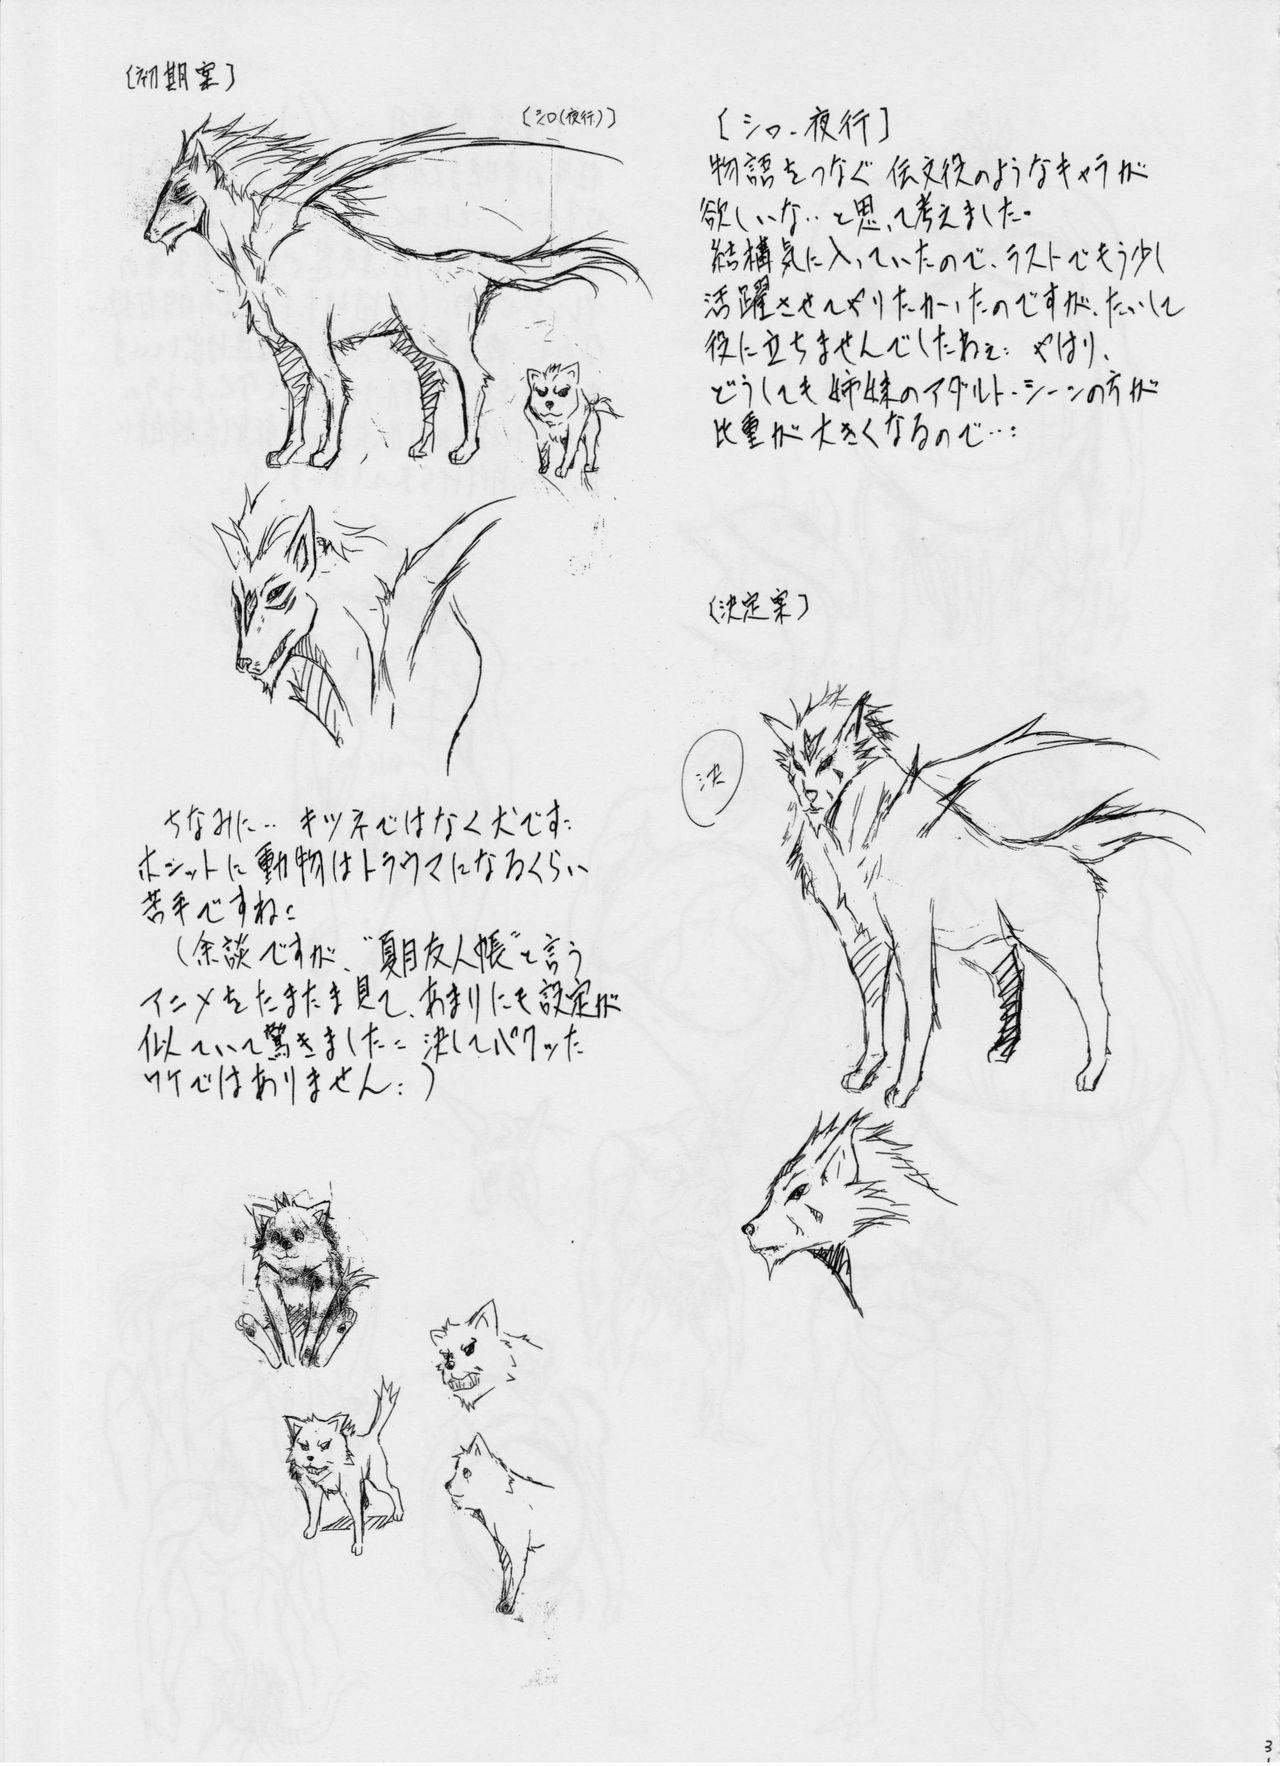 〔初期案〕
〔シロ(夜行)〕
〔シロ・夜行〕
物語をつなぐ伝文役のようなキャラが
欲しいな‥と思って考えました。
結構気に入っていたので、ラストでもう少し
活躍させてやりたかったのですが、たいして
役に立ちませんでしたねぇ: やはり、
どうしても姉妹のアダルト・シーンの方が
比重が大きくなるので…:
〔決定案〕
決
ちなみに‥キツネではなく犬です:
ホントに動物はトラウマになるくらい
苦手ですね:
(余談ですが、"夏目友人帳"と言う
アニメをたまたま見て、あまりにも設定が
似ていて驚きました: 決してパクッた
ワケではありません:)